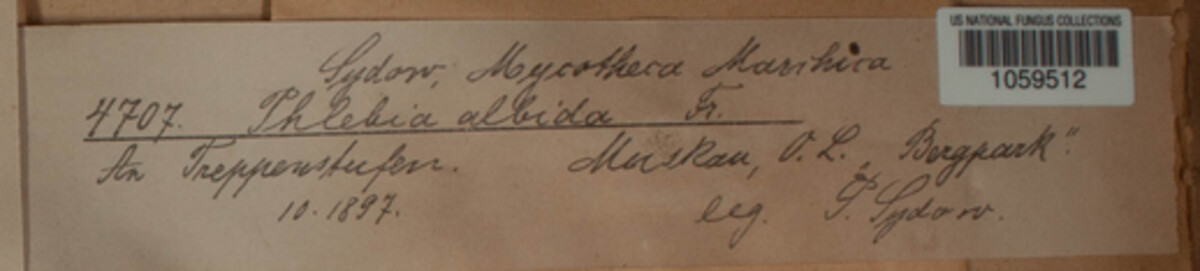 US NATIONAL FUNGUS COLLECTIONS
1059512
Sydow, Mycotheca Marchica
4707. Phlebia albida Fr.
An Treppenstufen. Muskau, O. L. „Bergpark“.
10. 1897. leg. P. Sydow.